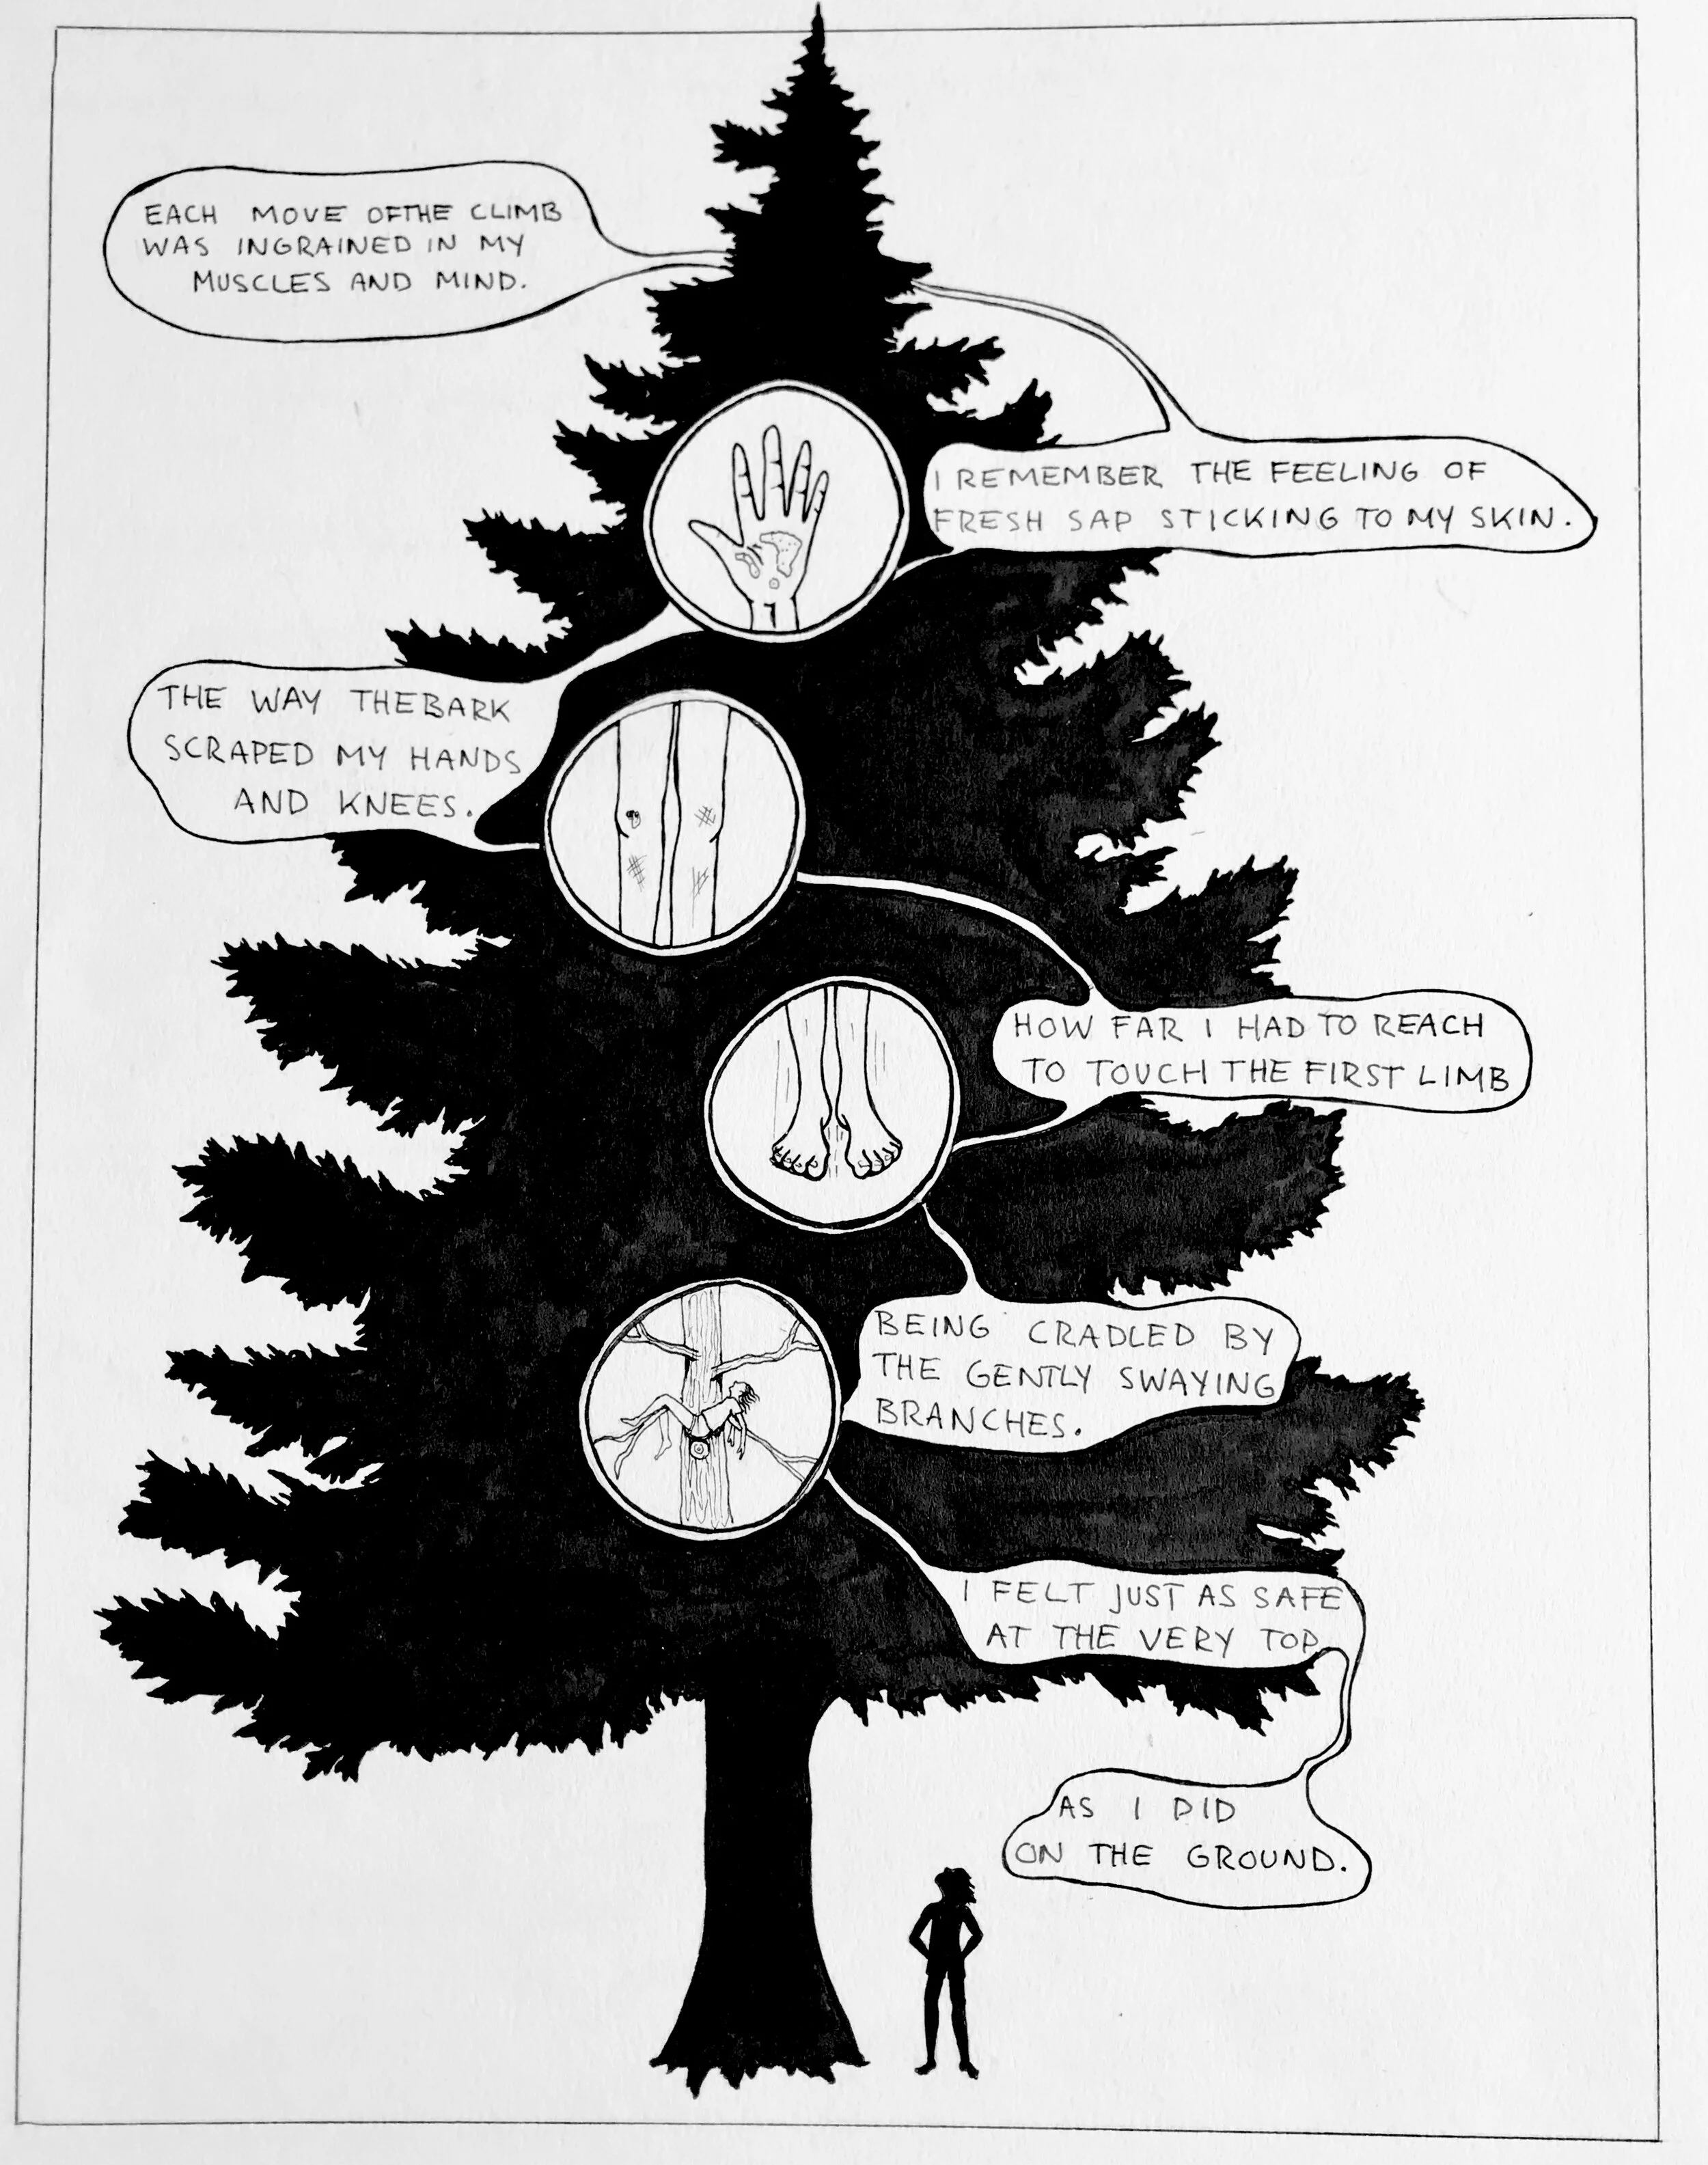 EACH MOVE OFTHE CLIMB
WAS INGRAINED IN MY
MUSCLES AND MIND.
I REMEMBER THE FEELING OF
FRESH SAP STICKING TO MY SKIN.
THE WAY THEBARK
SCRAPED MY HANDS
AND KNEES.
HOW FAR I HAD TO REACH
TO TOUCH THE FIRST LIMB
BEING CRADLED BY
THE GENTLY SWAYING
BRANCHES.
I FELT JUST AS SAFE
AT THE VERY TOP
AS I DID
ON THE GROUND.